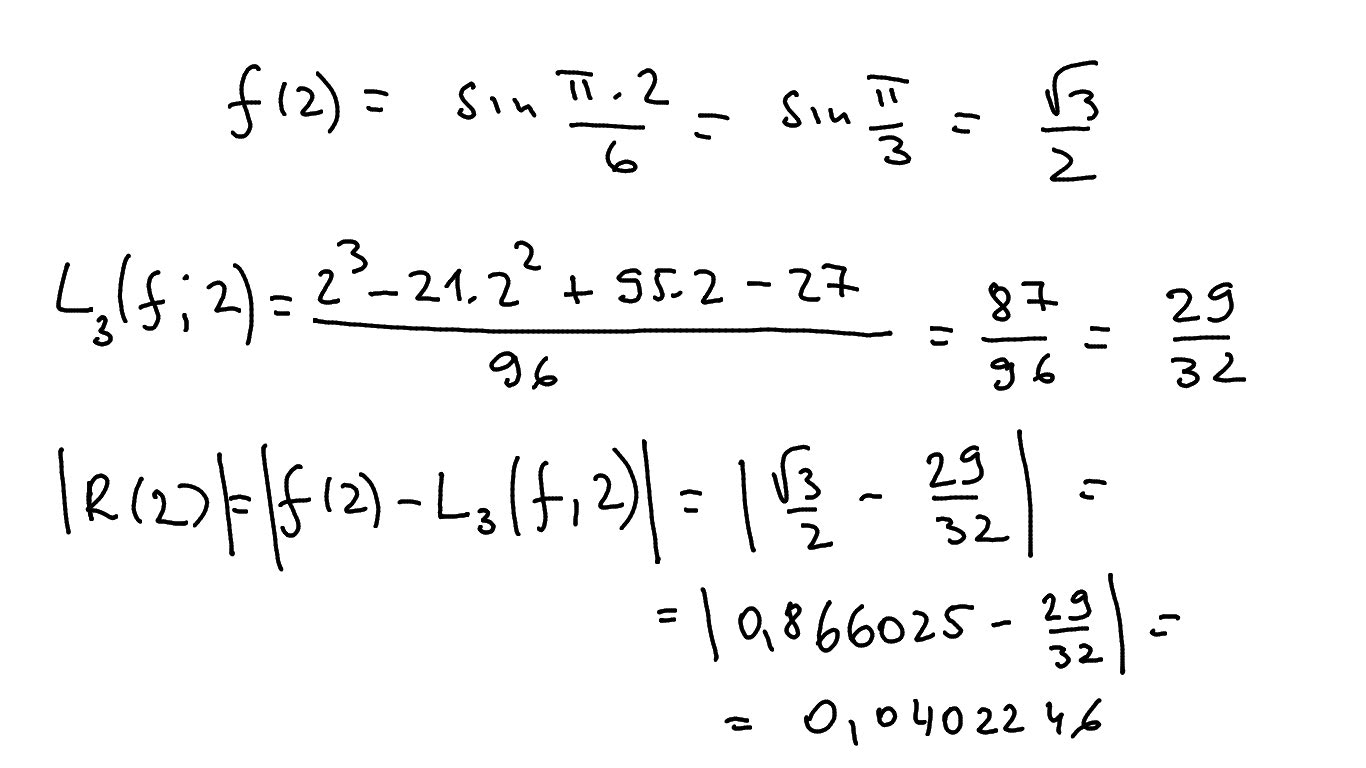 f(2) = sin π.2/6 = sin π/3 = √3/2
L₃(f;2) = (2³ - 21.2² + 95.2 - 27)/96 = 87/96 = 29/32
|R(2)| = |f(2) - L₃(f,2)| = |√3/2 - 29/32| =
= |0,866025 - 29/32| =
= 0,0402246